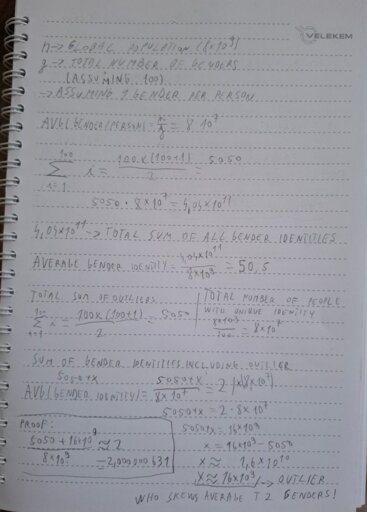 VELEKEM
n → GLOBAL POPULATION (8×10⁹)
g → TOTAL NUMBER OF GENDERS
(ASSUMING 100)
→ ASSUMING 1 GENDER PER PERSON
AVG(GENDER/PERSON) = n/g = 8·10⁷
100 ∑ i=1 i = 100×(100+1)/2 = 5050
5050 · 8×10⁷ = 4,04×10¹¹
4,04×10¹¹ → TOTAL SUM OF ALL GENDER IDENTITIES
AVERAGE GENDER IDENTITY = 4,04×10¹¹/8×10⁹ = 50,5
TOTAL SUM OF OUTLIERS
∑ = 100×(100+1)/2 = 5050
TOTAL NUMBER OF PEOPLE
WITH UNIQUE IDENTITY
8×10⁹/100 = 8×10⁷
SUM OF GENDER IDENTITIES INCLUDING OUTLIER
5050+x
AVG(GENDER IDENTITY) = 5050+x/8×10⁹ = 2
5050+x = 2·8×10⁹
5050+x = 16×10⁹
x = 16×10⁹ − 5050
x ≈ 1,6×10¹⁰
x ≈ 16×10⁹ → OUTLIER
WHO SKEWS AVERAGE T 2 GENDERS!
PROOF:
5050 + 16×10⁹/8×10⁹ ≈ 2
= 2,000000631